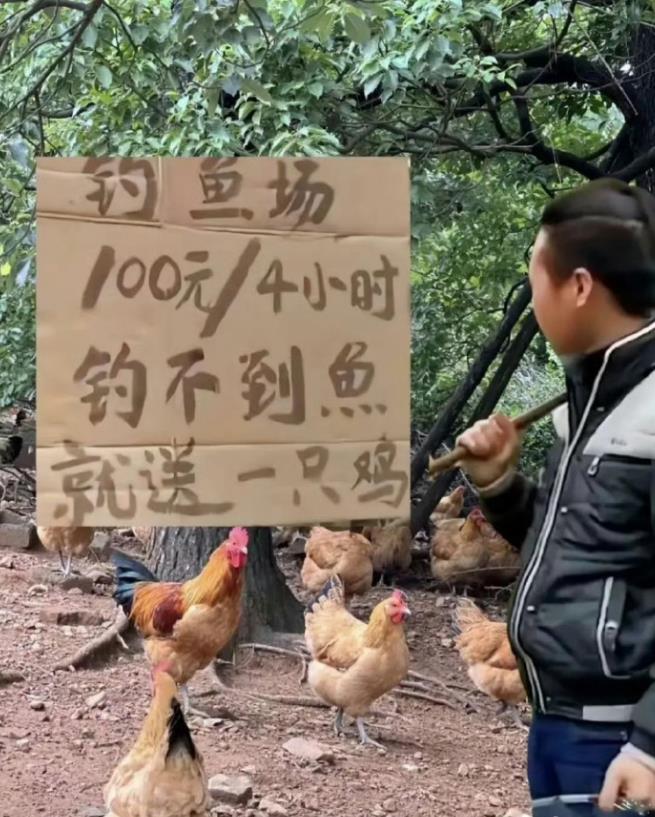 钓鱼场
100元/4小时
钓不到鱼
就送一只鸡